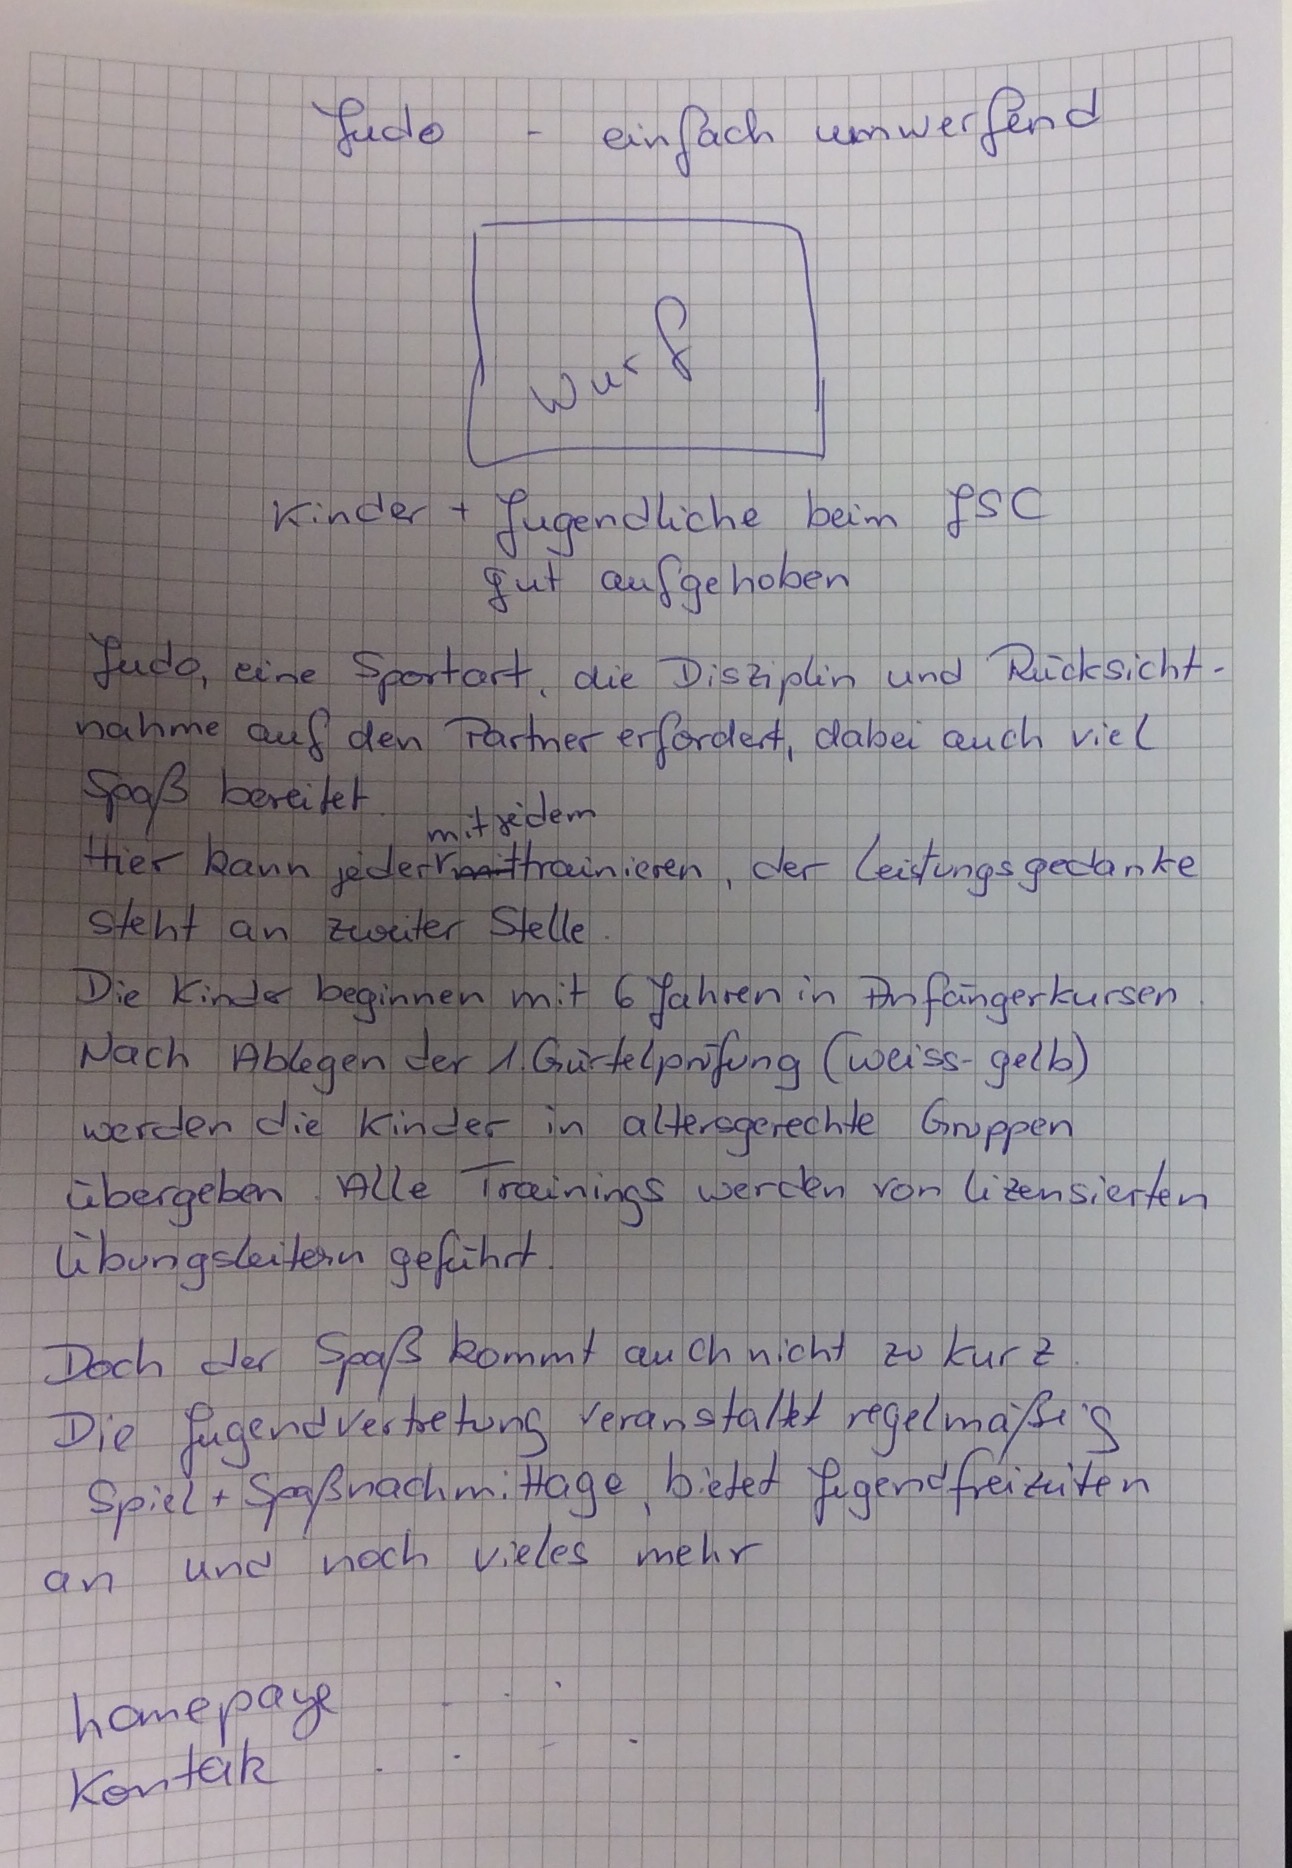 Judo - einfach umwerfend
Wurf
Kinder + Jugendliche beim JSC
gut aufgehoben
Judo, eine Sportart, die Disziplin und Rücksicht-
nahme auf den Partner erfordert, dabei auch viel
Spaß bereitet.
mit jedem
Hier kann jeder trainieren, der Leistungsgedanke
steht an zweiter Stelle.
Die Kinder beginnen mit 6 Jahren in Anfängerkursen.
Nach Ablegen der 1. Gürtelprüfung (weiss-gelb)
werden die Kinder in altersgerechte Gruppen
übergeben. Alle Trainings werden von lizensierten
Übungsleitern geführt.
Doch der Spaß kommt auch nicht zu kurz.
Die Jugendvertretung veranstaltet regelmäßig
Spiel + Spaßnachmittage, bietet Jugendfreizeiten
an und noch vieles mehr
homepage
Kontak